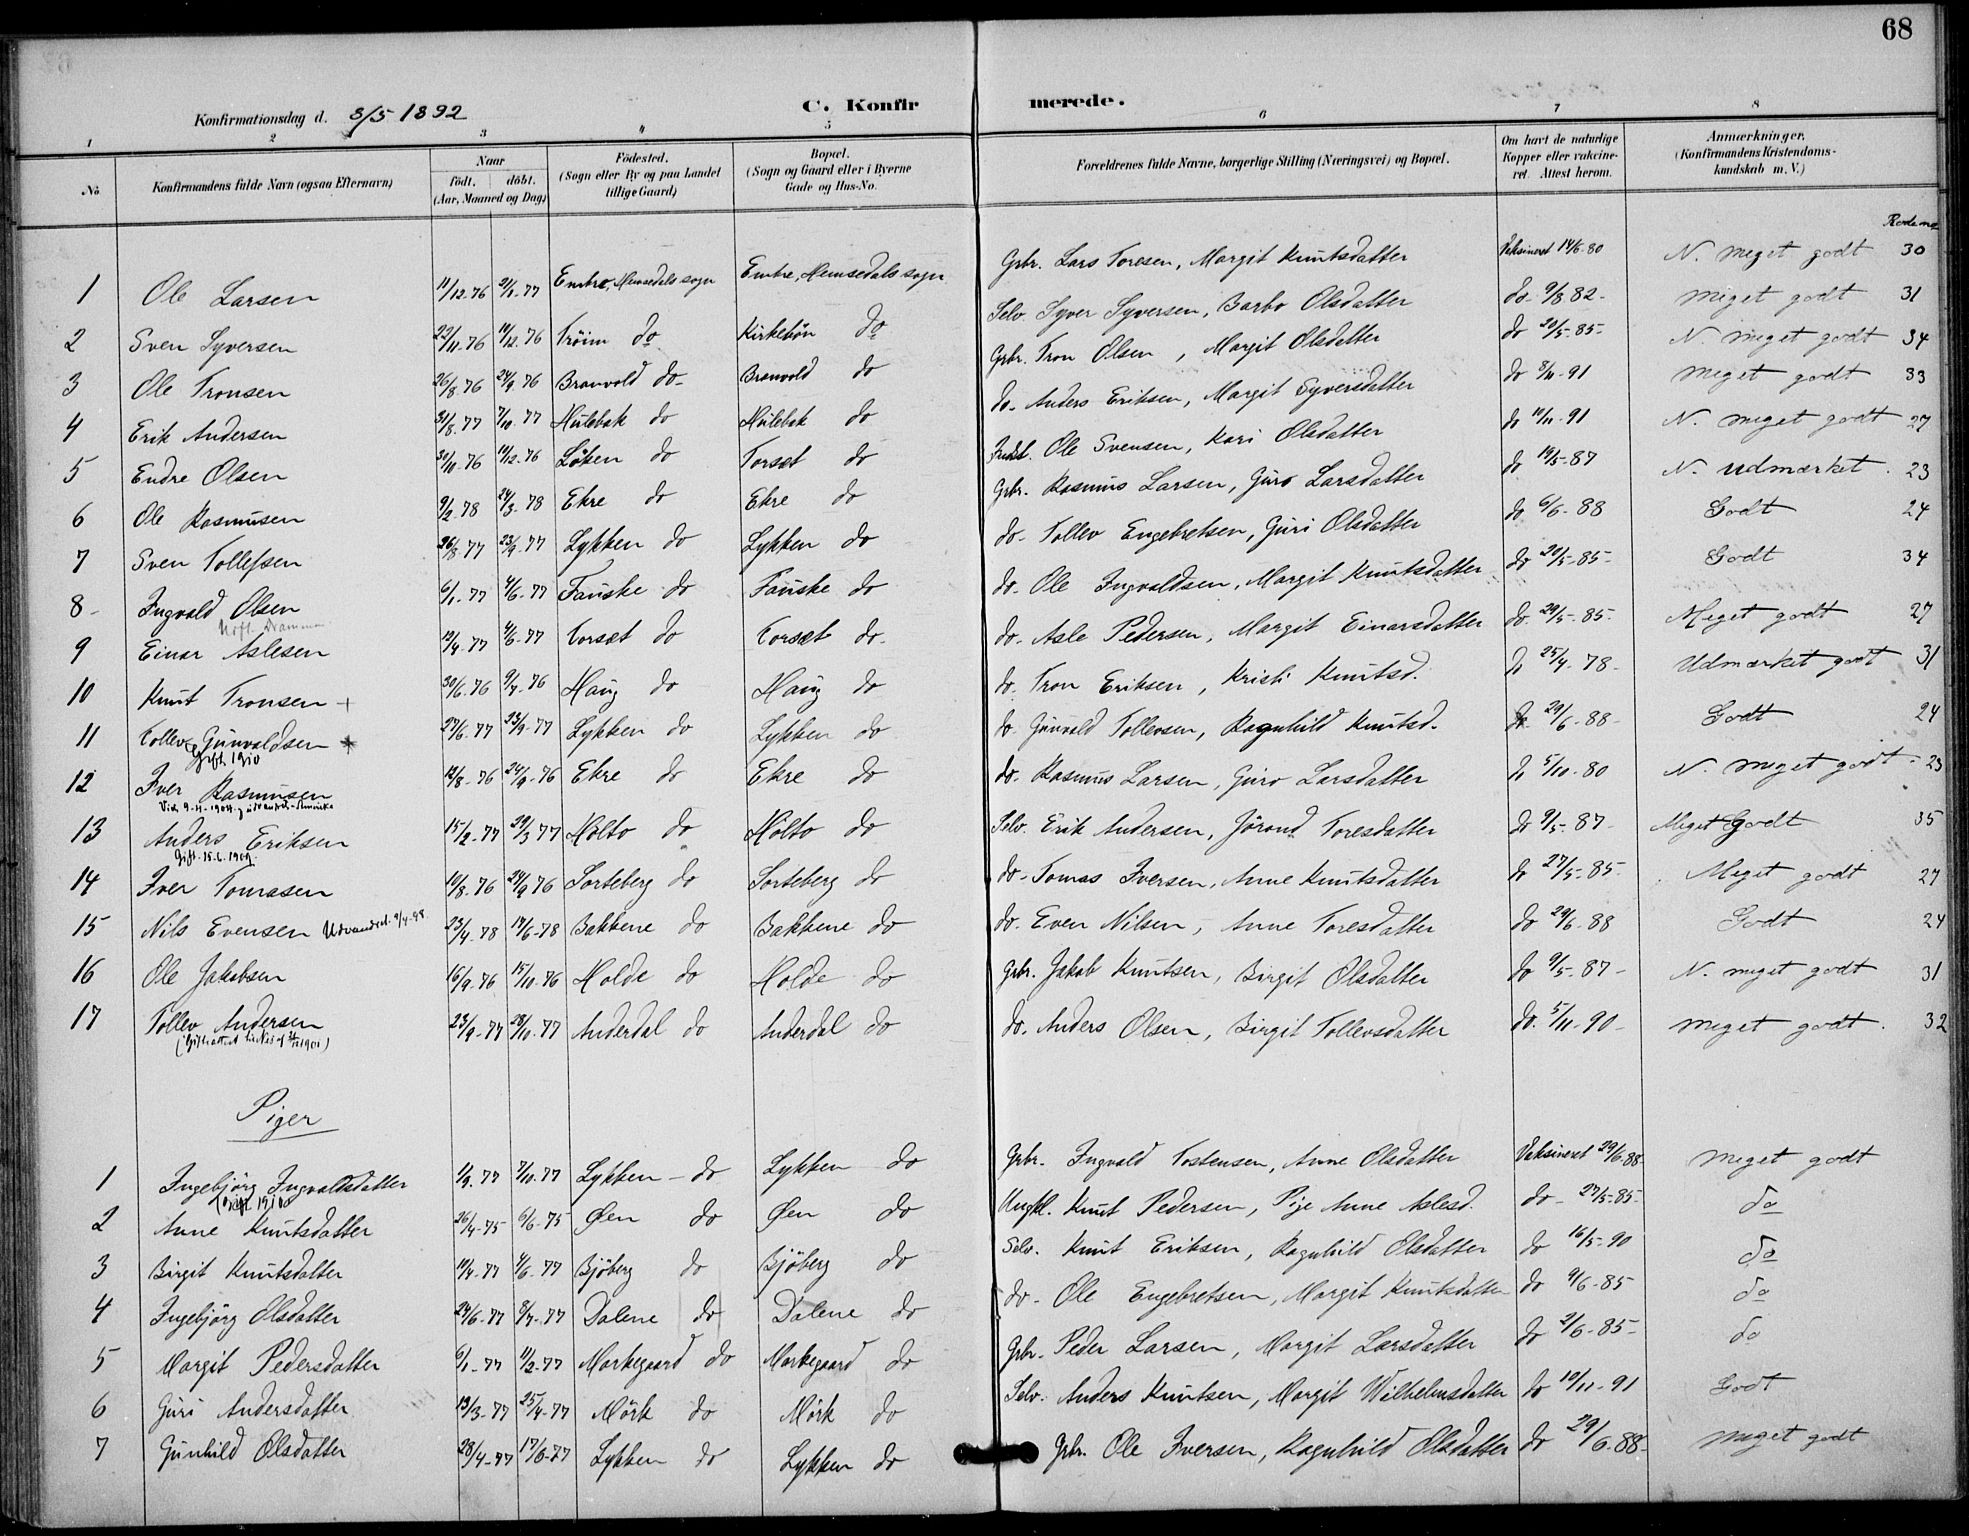 68
Konfirmationsdag d. 8/5 1892
C. Konfirmerede.
1 2 3 4 5 6 7 8
No.
Konfirmandens fulde Navn (ogsaa Efternavn)
Naar
födt. döbt.
(Aar, Maaned og Dag)
Födested.
(Sogn eller By og paa Landet
tillige Gaard)
Bopæl.
(Sogn og Gaard eller i Byerne
Gade og Hus-No.
Forældrenes fulde Navne, borgerlige Stilling (Næringsvei) og Bopæl.
Om havt de naturlige
Kopper eller vakcine-
ret. Attest herom.
Anmærkninger.
(Konfirmandens Kristendoms-
kundskab m. V.)
1 Ole Larsen 11/12.76 21/1.77 Embre, Hemsedals sogn Embre, Hemsedals sogn Gbr. Lars Toresen, Margit Knutsdatter Vaksineret 14/6.80 N. meget godt 30
2 Sven Syversen 22/11.76 19/12.76 Tröim do Kirkebön do Selv. Syver Syversen, Barbo Olsdatter do 9/8 82 meget godt 31
3 Ole Tronsen 26/8.76 24/9.76 Branvold do Branvold do Gbr. Tron Olsen, Margit Olsdatter do 20/5-85 N. meget godt 34
4 Erik Andersen 31/8.77 7/10.77 Hulebak do Hulebak do do. Anders Eriksen, Margit Syversdatter do 8/11-91 meget godt 33
5 Endre Olsen 30/10.76 11/12.76 Löken do Torset do Ole Svensen, Kari Olsdatter do 11/11-91 N. meget godt 27
6 Ole Rasmusen 9/2.78 24/3.78 Ekre do Ekre do Gbr. Rasmus Larsen, Guro Larsdatter do 19/5-87 N. udmærket 23
7 Sven Tollefsen 26/8.77 23/9.77 Lykken do Lykken do do. Tollev Engebretsen, Guri Olsdatter do 6/6-88 Godt 24
8 Ingvald Olsen 6/1.77 4/6.77 Fauske do Fauske do do. Ole Ingvaldsen, Margit Knutsdatter do 20/5-85 Godt 34
9 Einar Aslesen 19/4.77 4/6.77 Torset do Torset do do. Asle Pedersen, Margit Einarsdatter do 29/5-85 Meget godt 27
10 Knut Tronsen + 30/6.76 9/7.76 Haug do Haug do do. Tron Eriksen, Kristi Knutsd. do 25/4.78 Udmærket godt 31
11 Tollev Gunvaldsen 27/6.77 23/9.77 Lykken do Lykken do do. Gunvald Tollevsen, Ragnhild Knutsd. do 29/6-88 Godt 24
Gift 1910
12 Iver Rasmusen 12/8.76 24/9.76 Ekre do Ekre do do. Rasmus Larsen, Guro Larsdatter do 5/10-80 N. meget godt 23
13 Anders Eriksen 15/2.77 29/3 77 Holto do Holto do Selv. Erik Andersen, Jörond Toresdatter do 9/5-87 Meget Godt 35
Gift 15.6.1909.
14 Iver Tomasen 19/8.76 24/9 76 Sorteberg do Sorteberg do do. Tomas Iversen, Anne Knutsdatter do 27/5-85 Meget godt 27
15 Nils Evensen Udvandret 9/4-98 23/4.78 17/6-78 Bakkene do Bakkene do do. Even Nilsen, Anne Toresdatter do 29/6-88 Godt 24
16 Ole Jakobsen 16/9.76 15/10.76 Holde do Holde do Gbr. Jakob Knutsen, Birgit Olsdatter do 9/5-87 N. meget godt 31
17 Tollev Andersen 23/9-77 28/10-77 Anderdal do Anderdal do do. Anders Olsen, Birgit Tollevsdatter do. 5/11-90 meget godt 32
Piger
1 Ingebjörg Ingvaldsdatter 1/9.77 7/10.77 Lykken do Lykken do Gbr. Ingvald Tostensen, Anne Olsdatter Vaksineret 29/6-88 meget godt
2 Anne Knutsdatter 26/4-75 6/6-75 Øen do Øen do Ungkl. Knut Pedersen, Pige Anne Aslesd. do 27/5-85 do
3 Birgit Knutsdatter 19/4-77 4/6-77 Bjöberg do Bjöberg do Selv. Knut Eriksen, Ragnhild Olsdatter do 16/5-90 do
4 Ingebjörg Olsdatter 24/6-77 8/7-77 Dalene do Dalene do do. Ole Engebretsen, Margit Knutsdatter do 9/6-85 do
5 Margit Pedersdatter 6/1-77 11/2-77 Markegaard do Markegaard do Gbr. Peder Larsen, Margit Larsdatter do 2/6-85 do
6 Guri Andersdatter 13/3-77 25/4-77 Mörk do Mörk do Selv. Anders Knutsen, Margit Wilhelmsdatter do 10/11-91 Godt
7 Gunhild Olsdatter 28/4-77 17/6-77 Lykken do Lykken do Gbr. Ole Iversen, Ragnhild Olsdatter do 29/6-88 meget godt